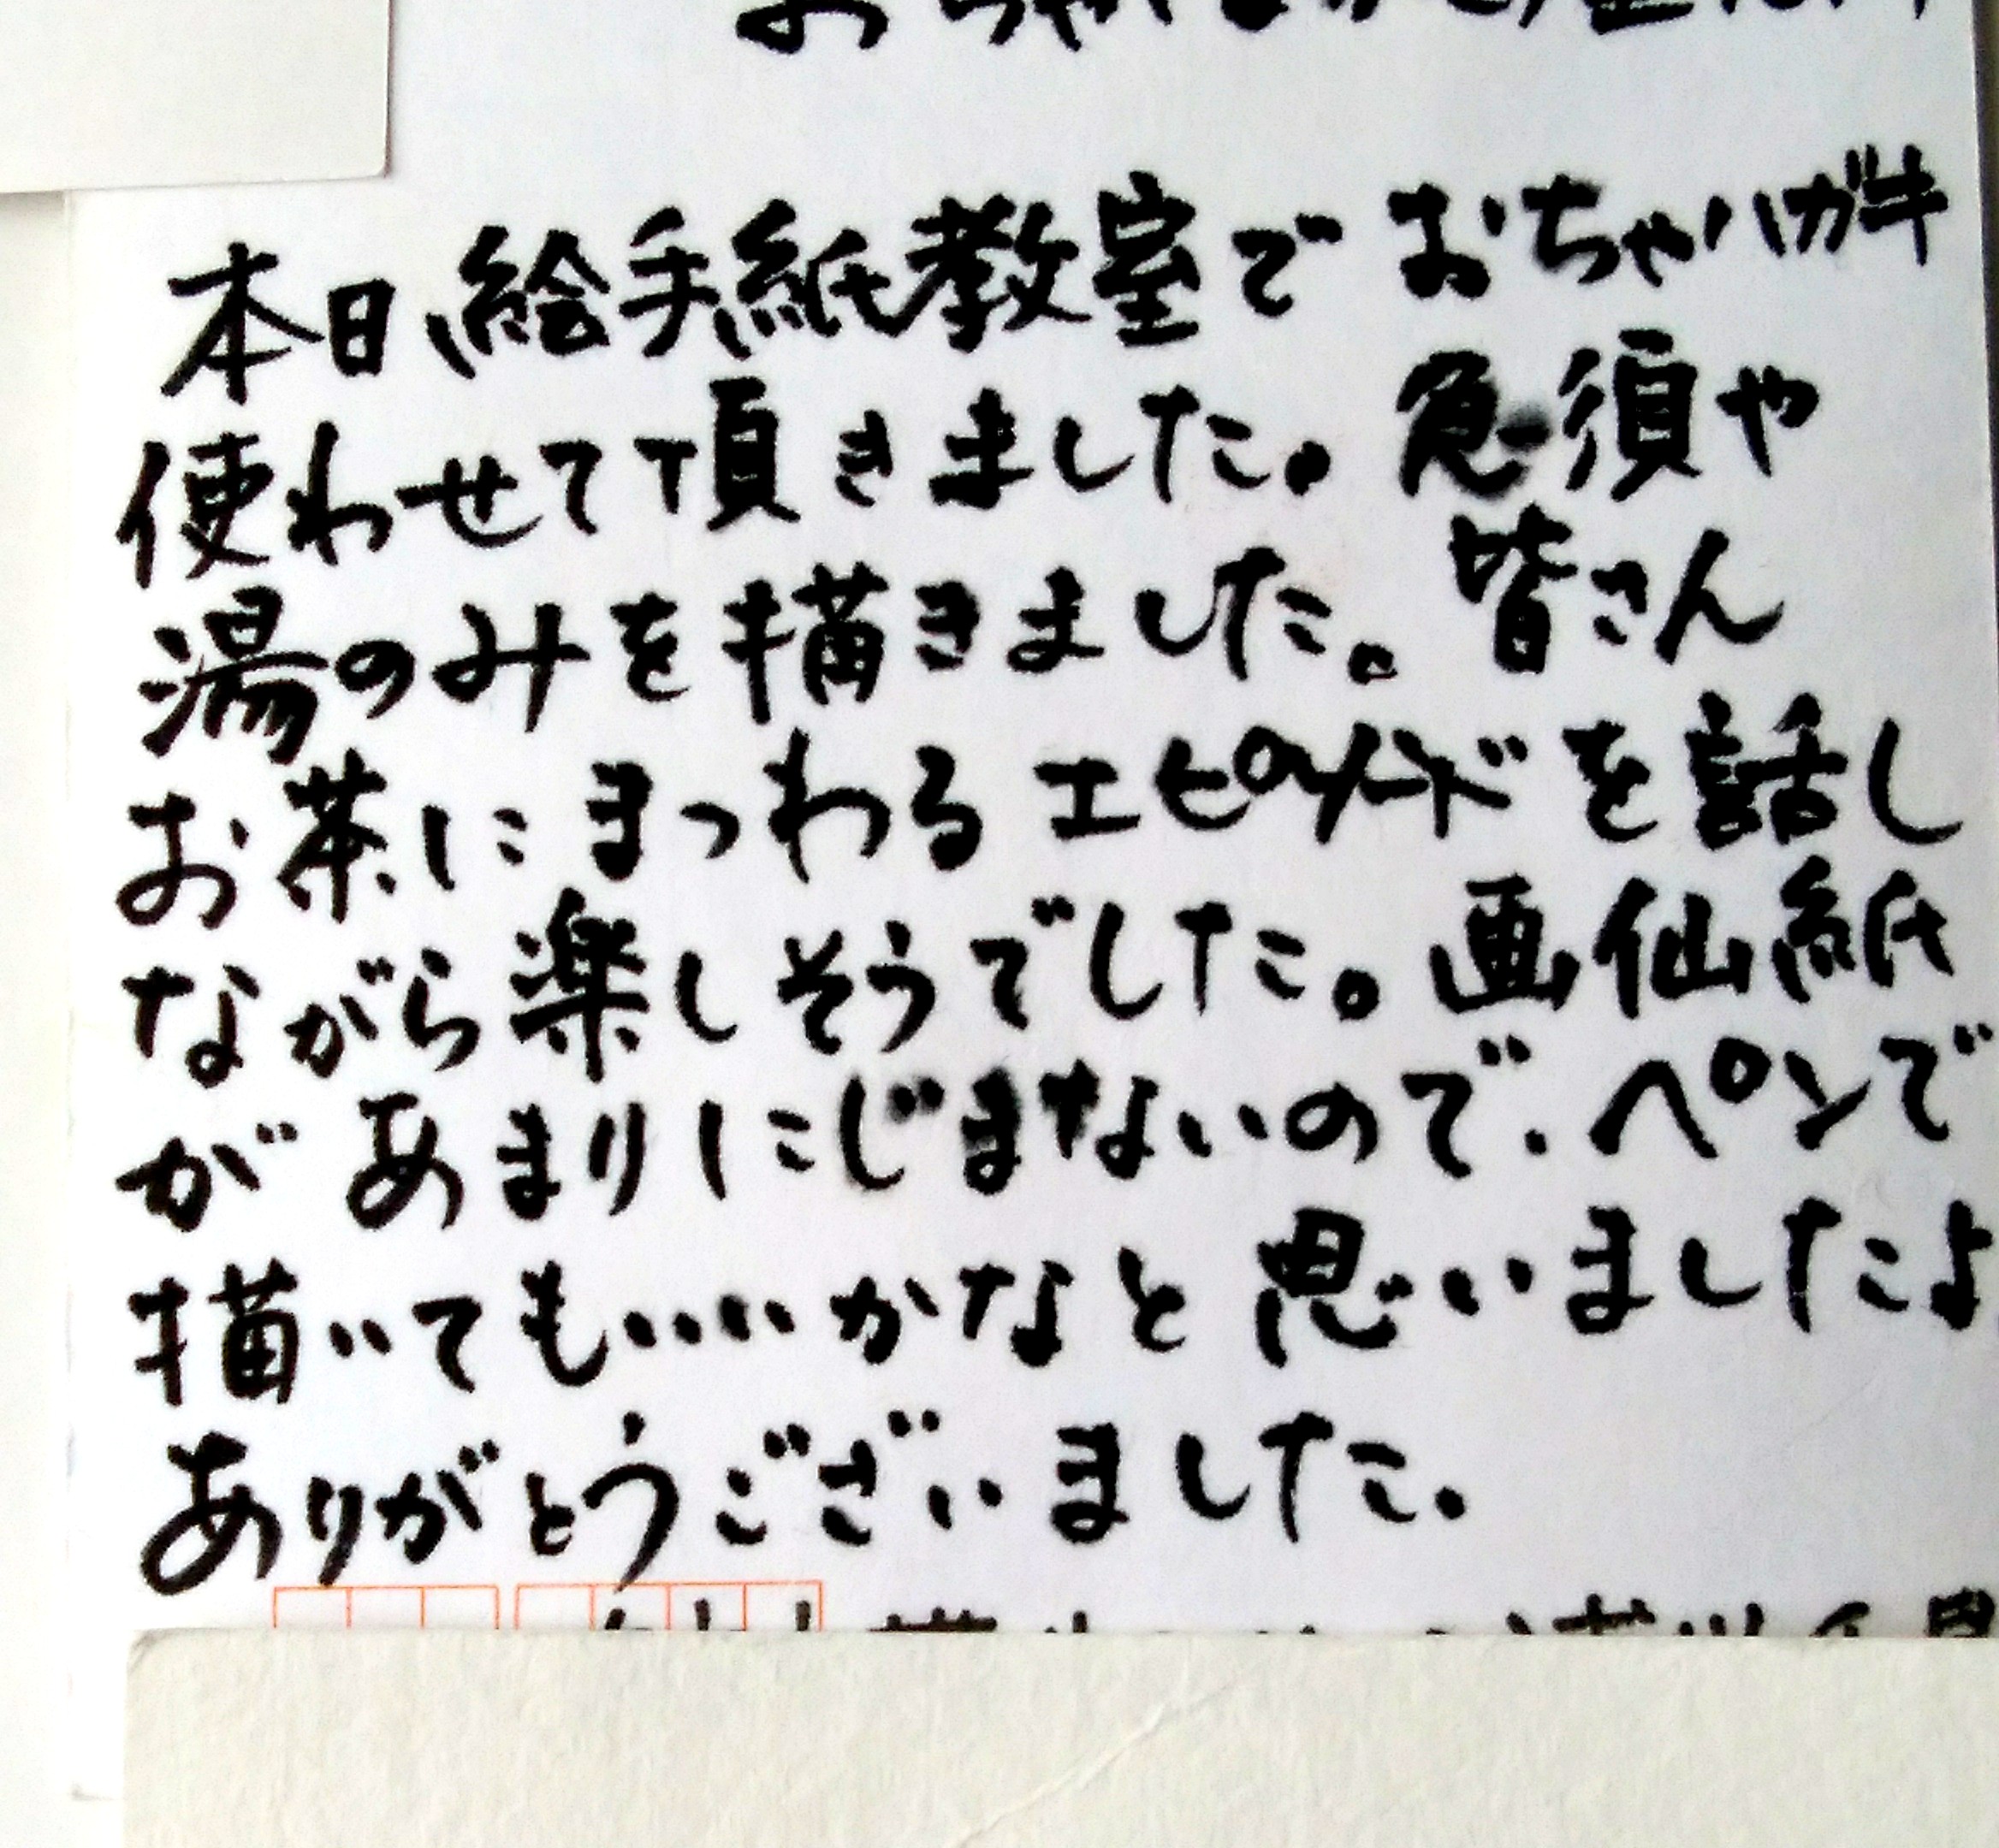 本日、絵手紙教室で おちゃハガキ
使わせて頂きました。急須や
湯のみを描きました。皆さん
お茶にまつわるエピソードを話し
ながら楽しそうでした。画仙紙
があまりにじまないので、ペンで
描いてもいいかなと思いましたよ
ありがとうございました。